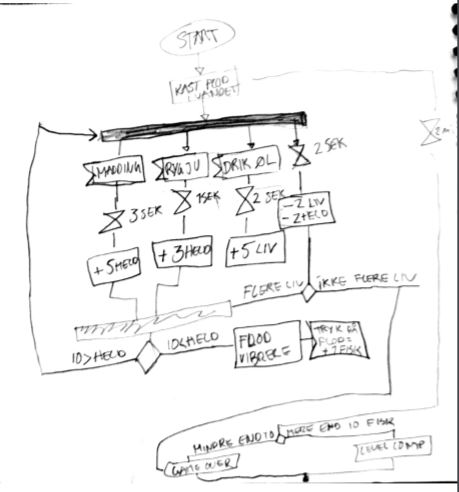 START
KAST FLOD
I VANDET
2 m
MADDING
RYG JU
DRIK ØL
2 SEK
3 SEK
1 SEK
2 SEK
-2 LIV
-2 HELD
+5 HELD
+3 HELD
+5 LIV
FLERE LIV
IKKE FLERE LIV
10>HELD
10<HELD
FLOD
VIBRERE
TRYK PÅ
FLOD=
+1 FISK
MINDRE END 10
MERE END 10 FISK
GAME OVER
LEVEL COMP